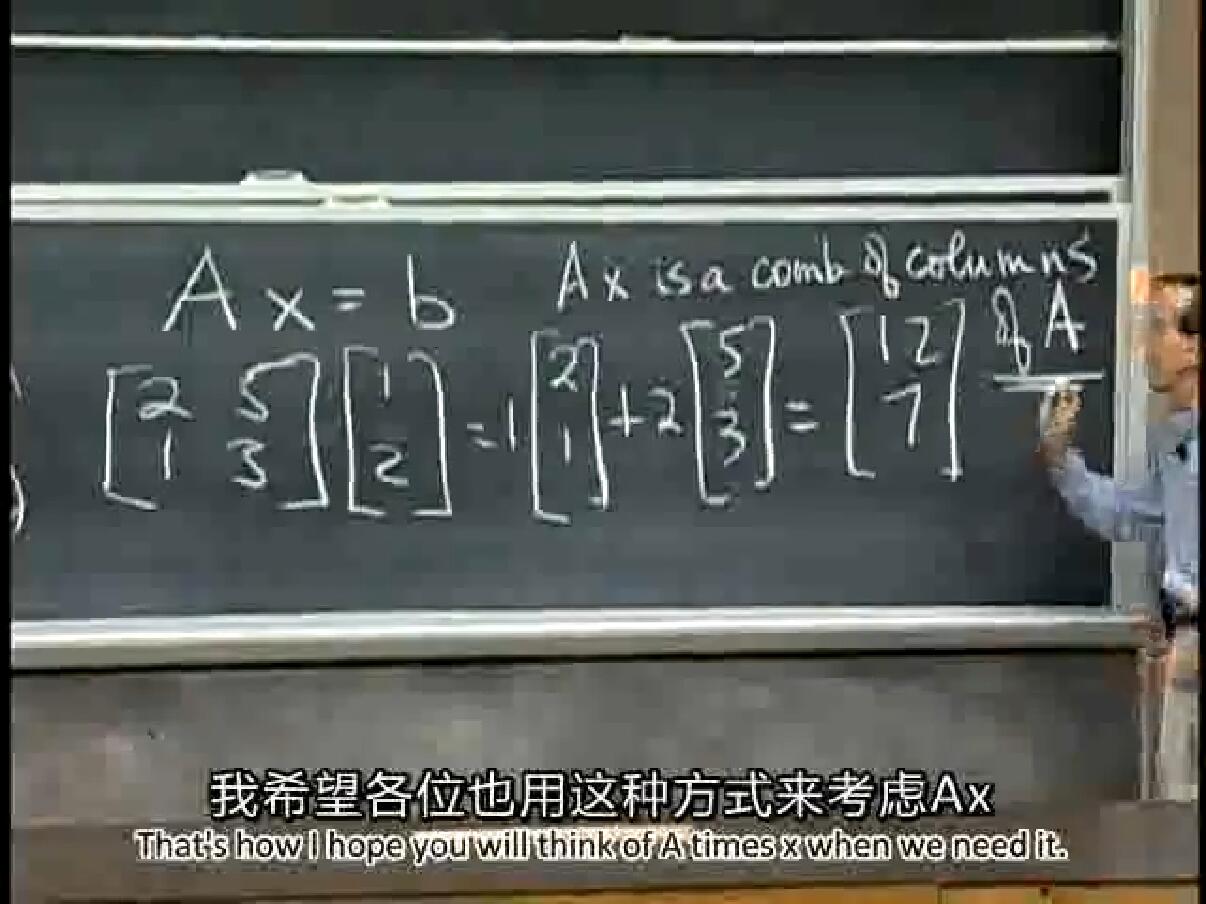 Ax = b
Ax is a comb of columns of A
[2 5; 1 3] [1; 2] = 1 [2; 1] + 2 [5; 3] = [12; 7]
我希望各位也用这种方式来考虑Ax
That's how I hope you will think of A times x when we need it.